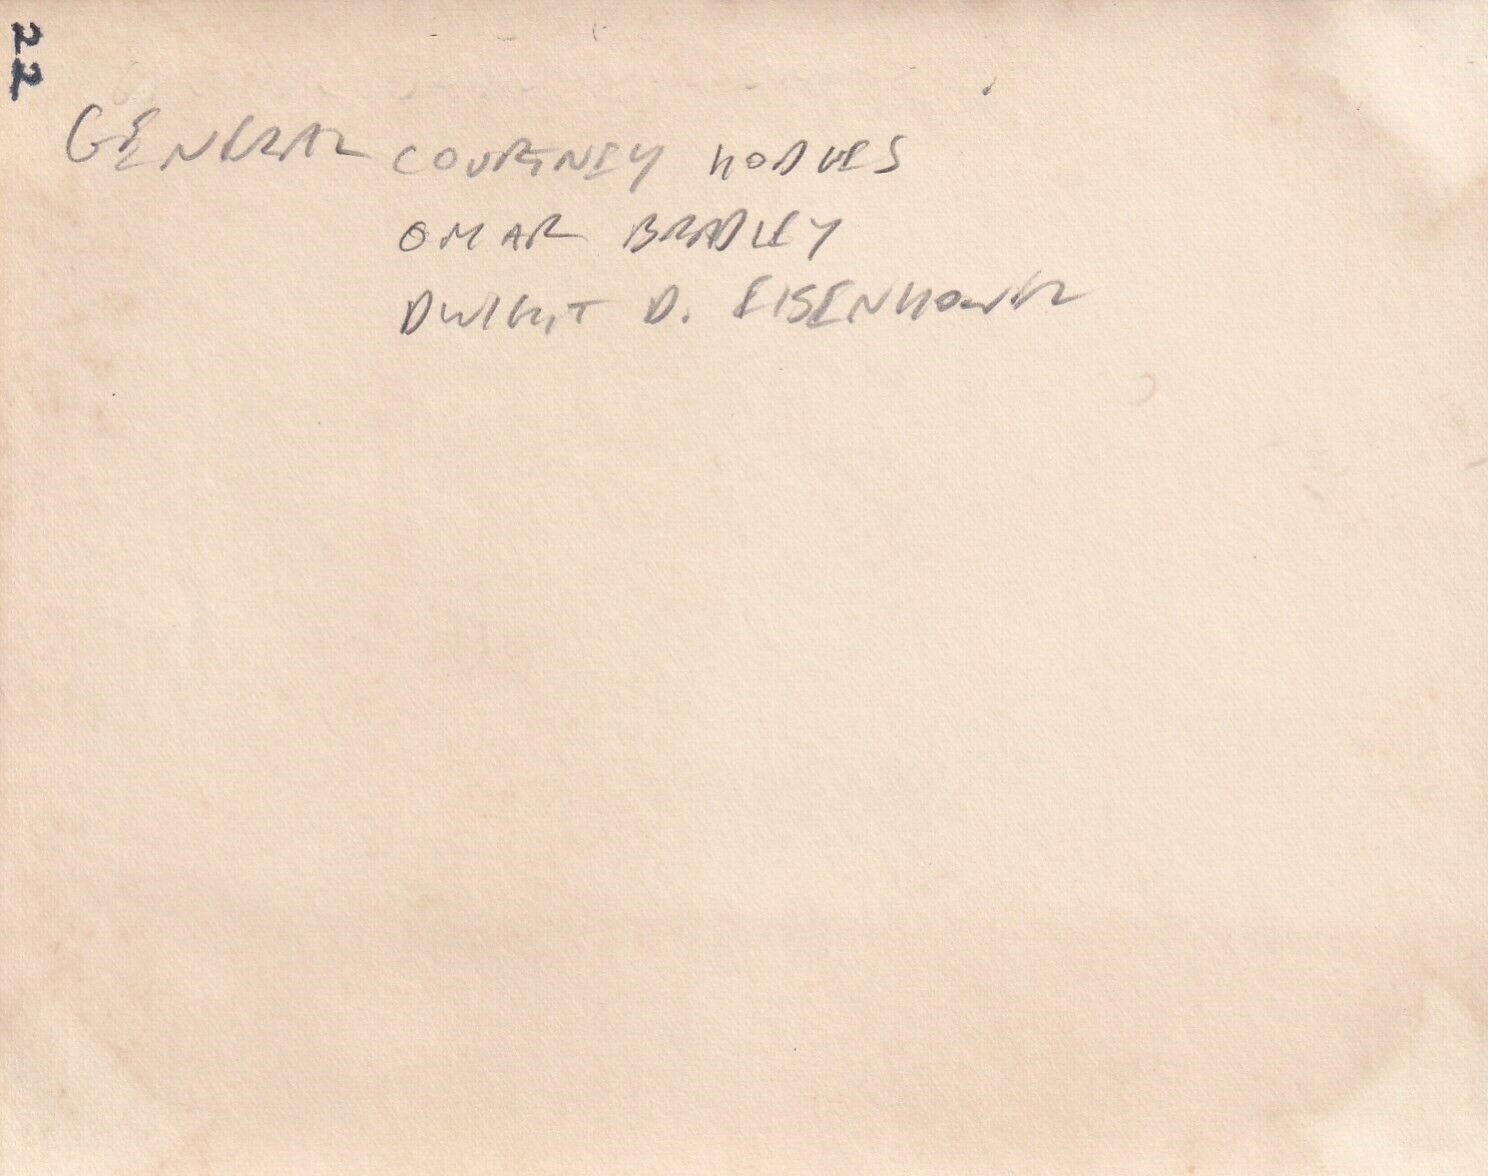 22
GENERAL COURTNEY HODGES
OMAR BRADLEY
DWIGHT D. EISENHOWER